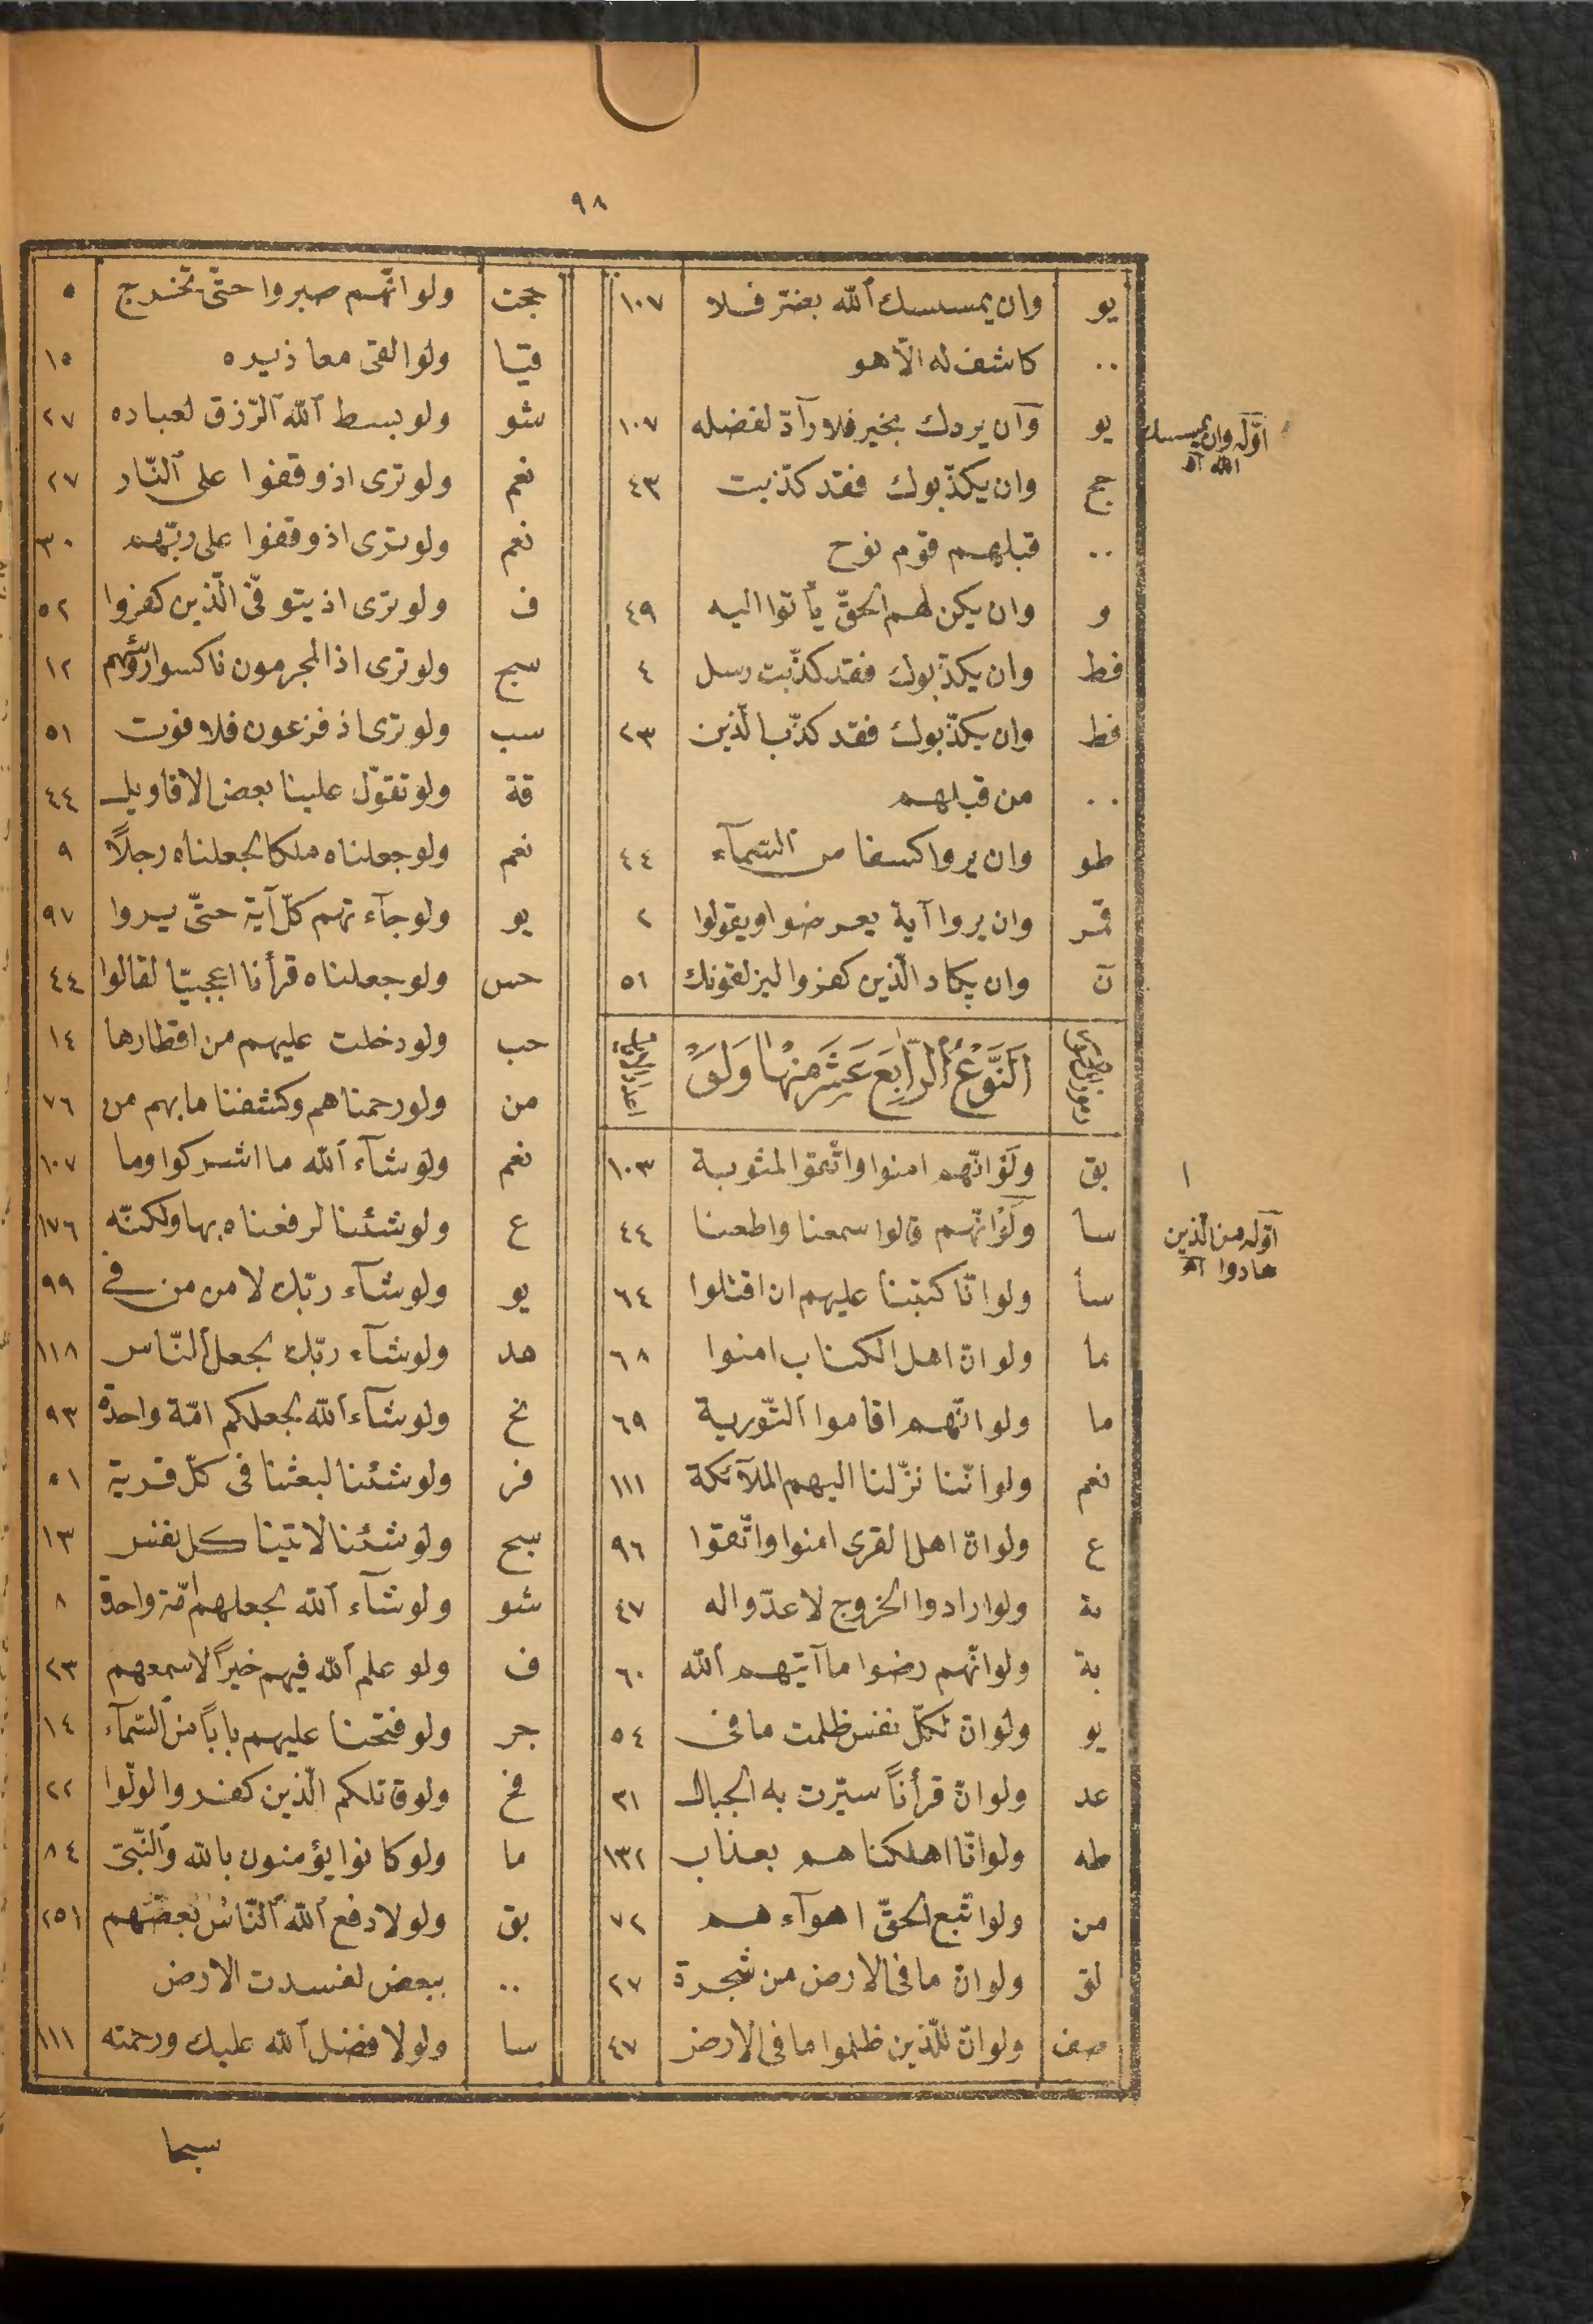 ٩٨
يو وان يمسسك ٱلله بضرّ فلا ١٠٧
.. كاشف له الّا هو
يو وآن يردك بخير فلا رآدّ لفضله ١٠٧
اوّله وان يمسسك
الله آه
حج وان يكذّبوك فقد كذّبت ٤٣
.. قبلهم قوم نوح
و وان يكن لهم الحقّ يأتوا اليه ٤٩
فط وان يكذّبوك فقد كذّبت رسل ٤
فط وان يكذّبوك فقد كذّب الّذين ٢٣
.. من قبلهم
طو وان يروا كسفا من ٱلسّمآء ٤٤
قمر وان يروا آية يعرضوا ويقولوا ٢
نۤ وان يكاد الّذين كفروا ليزلقونك ٥١
اَلنَّوْعُ ٱلرَّابِعَ عَشَرَ مِنْهٰا وَلَوْ
بق ولَوْ انّهم امنوا واتّقوا لمثوبة ١٠٣
سا ولَوْ انّهم قالوا سمعنا واطعنا ٤٤
١
اوّله من الّذين
هادوا آه
سا ولو انّا كتبنا عليهم ان اقتلوا ٦٤
ما ولو انّ اهل الكتاب امنوا ٦٨
ما ولو انّهم اقاموا ٱلتّورية ٦٩
نعم ولو انّنا نزّلنا اليهم الملآئكة ١١١
ع ولو انّ اهل القرى امنوا واتّقوا ٩٦
بة ولو ارادوا الخروج لاعدّوا له ٤٧
بة ولو انّهم رضوا ما آتيهم ٱلله ٦٠
يو ولو انّ لكلّ نفس ظلمت ما فى ٥٤
عد ولو انّ قرأناً سيّرت به الجبال ٣١
طه ولو انّا اهلكناهم بعذاب ١٣٢
من ولو اتّبع الحقّ اهوآءهم ٧٢
لق ولو انّ ما فى الارض من شجرة ٢٧
صف ولو انّ للّذين ظلموا ما فى الارض ٤٧
حجت ولو انّهم صبروا حتّى تخرج ٥
قيا ولو القى معاذيره ١٥
شو ولو بسط ٱلله ٱلرّزق لعباده ٢٧
نعم ولو ترى اذ وقفوا على ٱلنّار ٢٧
نعم ولو ترى اذ وقفوا على ربّهم ٣٠
ف ولو ترى اذ يتوفّى الّذين كفروا ٥٢
سج ولو ترى اذ المجرمون ناكسوا رؤسهم ١٢
سب ولو ترى اذ فزعون فلا فوت ٥١
قة ولو تقوّل علينا بعض الاقاويل ٤٤
نعم ولو جعلناه ملكا لجعلناه رجلاً ٩
يو ولو جآءتهم كلّ آية حتّى يروا ٩٧
حس ولو جعلناه قرأنا اعجميّا لقالوا ٤٤
حب ولو دخلت عليهم من اقطارها ١٤
من ولو رحمناهم وكشفنا ما بهم من ٧٦
نعم ولو شآء ٱلله ما اشركوا وما ١٠٧
ع ولو شئنا لرفعناه بها ولكنّه ١٧٦
يو ولو شآء ربّك لامن من فى ٩٩
هد ولو شآء ربّك لجعل ٱلنّاس ١١٨
نح ولو شآء ٱلله لجعلكم امّة واحدة ٩٣
فر ولو شئنا لبعثنا فى كلّ قرية ٥١
سج ولو شئنا لاتينا كل نفس ١٣
شو ولو شآء ٱلله لجعلهم امّة واحدة ٨
ف ولو علم ٱلله فيهم خيراً لاسمعهم ٢٣
جر ولو فتحنا عليهم باباً من ٱلسّمآء ١٤
فح ولو قاتلكم الّذين كفروا لولّوا ٢٢
ما ولو كانوا يؤمنون بالله وٱلنّبىّ ٨٤
بق ولولا دفع ٱلله ٱلنّاس بعضهم ٢٥١
.. ببعض لفسدت الارض
سا ولولا فضل ٱلله عليك ورحمته ١١١